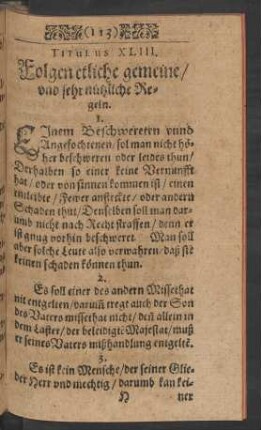 (113)
TITULUS XLIII.
Folgen etliche gemeine/
vnd sehr nützliche Re-
geln.
1.
EInem Beschwereten vund
Angefochtenen/ sol man nicht hö-
her beschweren oder leides thun/
Derhalben so einer keine Vernunfft
hat/ oder von sinnen kommen ist/ einen
entleibte/ Fewer anstecket/ oder andern
Schaden thut/ Denselben soll man dar-
umb nicht nach Recht straffen/ denn er
ist gnug vorhin beschweret. Man soll
aber solche Leute also verwahren/ daß sie
keinen schaden können thun.
2.
Es soll einer des andern Missethat
nit entgelten/ darum̃ tregt auch der Son
des Vaters missethat nicht/ deñ allein in
dem Laster/ der beleidigtẽ Majestat/ muß
er seines Vaters mißhandlung entgeltẽ.
3.
Es ist kein Mensche/ der seiner Glie-
der Herr vnd mechtig/ darumb kan kei-
H ner